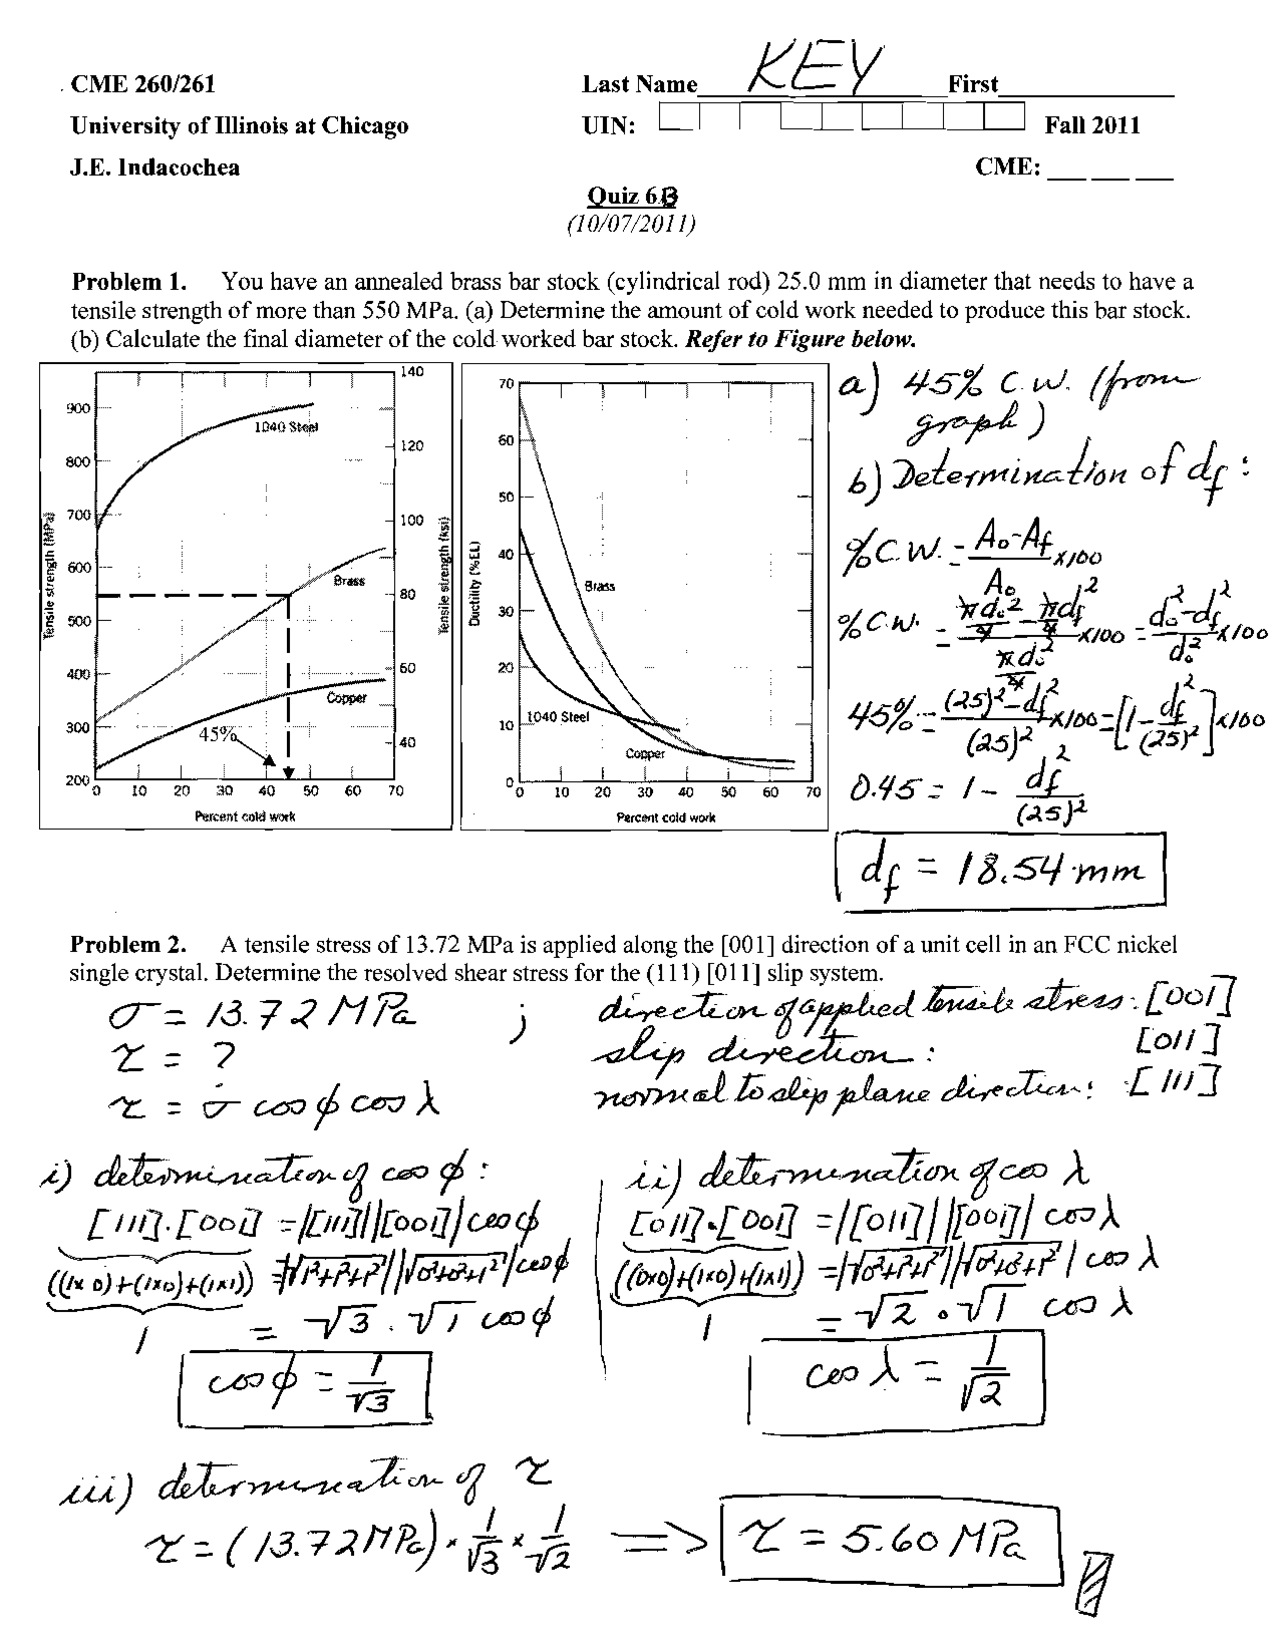 CME 260/261 Last Name KEY First
University of Illinois at Chicago UIN: Fall 2011
J.E. Indacochea CME:
Quiz 6B
(10/07/2011)
Problem 1. You have an annealed brass bar stock (cylindrical rod) 25.0 mm in diameter that needs to have a
tensile strength of more than 550 MPa. (a) Determine the amount of cold work needed to produce this bar stock.
(b) Calculate the final diameter of the cold worked bar stock. Refer to Figure below.
900
800
700
600
500
400
300
200
Tensile strength (MPa)
1040 Steel
Brass
Copper
45%
140
120
100
80
60
40
Tensile strength (ksi)
0 10 20 30 40 50 60 70
Percent cold work
70
60
50
40
30
20
10
0
Ductility (%EL)
Brass
1040 Steel
Copper
0 10 20 30 40 50 60 70
Percent cold work
a) 45% C.W. (from
graph)
b) Determination of df:
%C.W. = (A₀-Af)/A₀ x100
%C.W. = (πd₀²/4 - πdf²/4)/(πd₀²/4) x100 = (d₀²-df²)/d₀² x100
45% = ((25)²-df²)/(25)² x100 = [1 - df²/(25)²] x100
0.45 = 1 - df²/(25)²
df = 18.54 mm
Problem 2. A tensile stress of 13.72 MPa is applied along the [001] direction of a unit cell in an FCC nickel
single crystal. Determine the resolved shear stress for the (111) [011] slip system.
σ = 13.72 MPa ; direction of applied tensile stress: [001]
τ = ? slip direction: [011]
τ = σ cosφ cosλ normal to slip plane direction: [111]
i) determination of cos φ:
[111]·[001] = |[111]||[001]| cosφ
((1x0)+(1x0)+(1x1)) = |√1²+1²+1²||√0²+0²+1²| cosφ
1 = √3 · √1 cosφ
cosφ = 1/√3
ii) determination of cos λ
[011]·[001] = |[011]||[001]| cosλ
((0x0)+(1x0)+(1x1)) = |√0²+1²+1²||√0²+0²+1²| cosλ
1 = √2 · √1 cosλ
cosλ = 1/√2
iii) determination of τ
τ = (13.72 MPa) x 1/√3 x 1/√2 => τ = 5.60 MPa